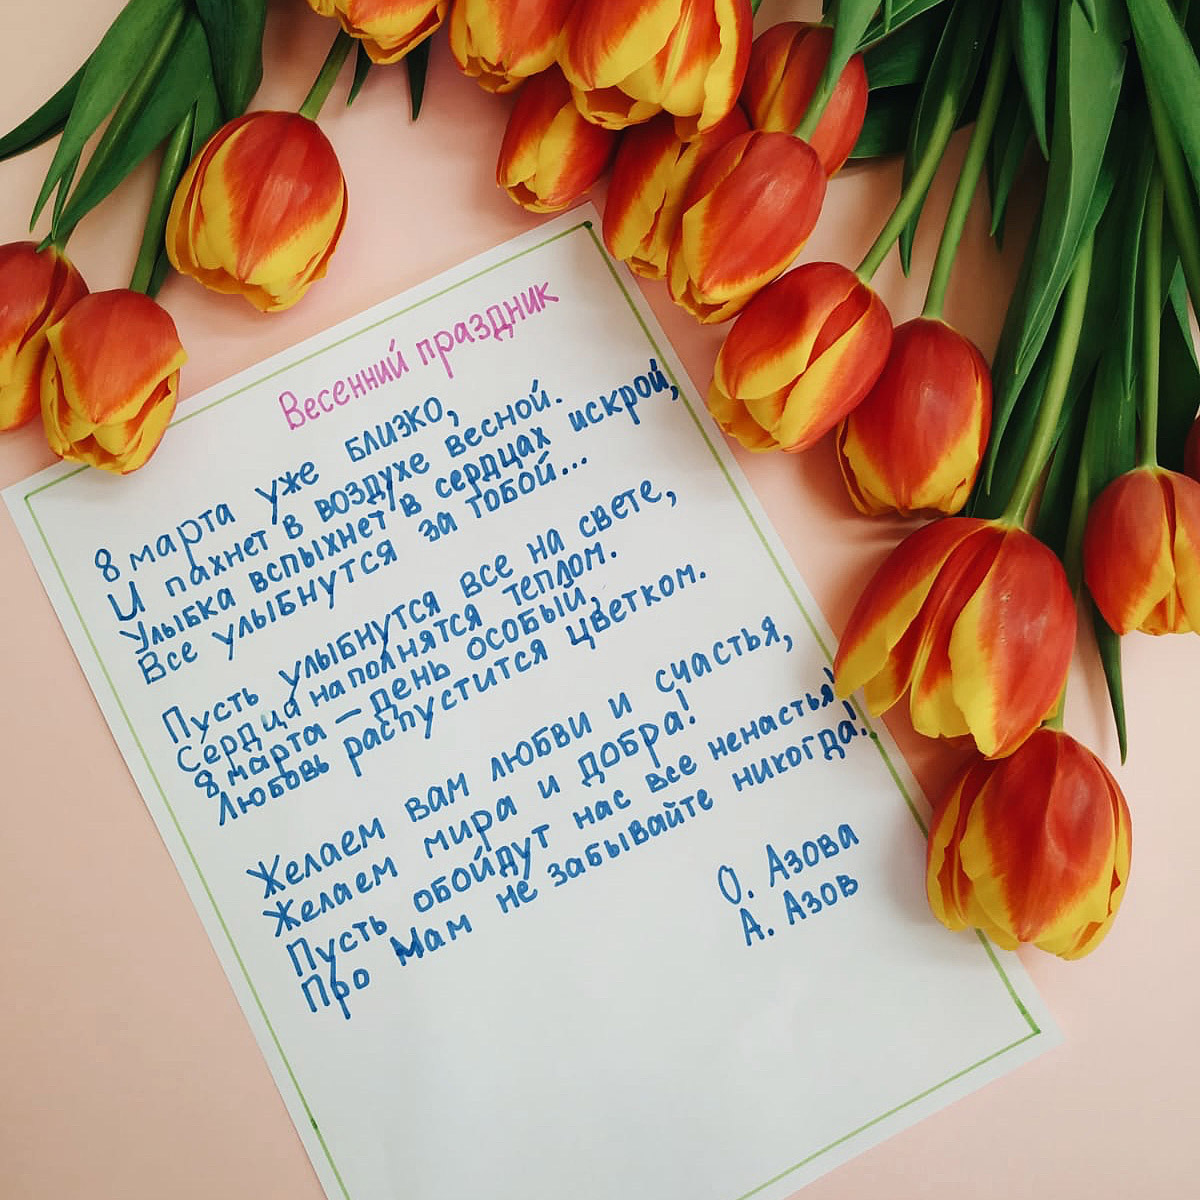 Весенний праздник
8 марта уже близко,
И пахнет в воздухе весной.
Улыбка вспыхнет в сердцах искрой,
Все улыбнутся за тобой...
Пусть улыбнутся все на свете,
Сердца наполнятся теплом.
8 марта – день особый,
Любовь распустится цветком.
Желаем вам любви и счастья,
Желаем мира и добра!
Пусть обойдут нас все ненастья!
Про Мам не забывайте никогда!
О. Азова
А. Азов